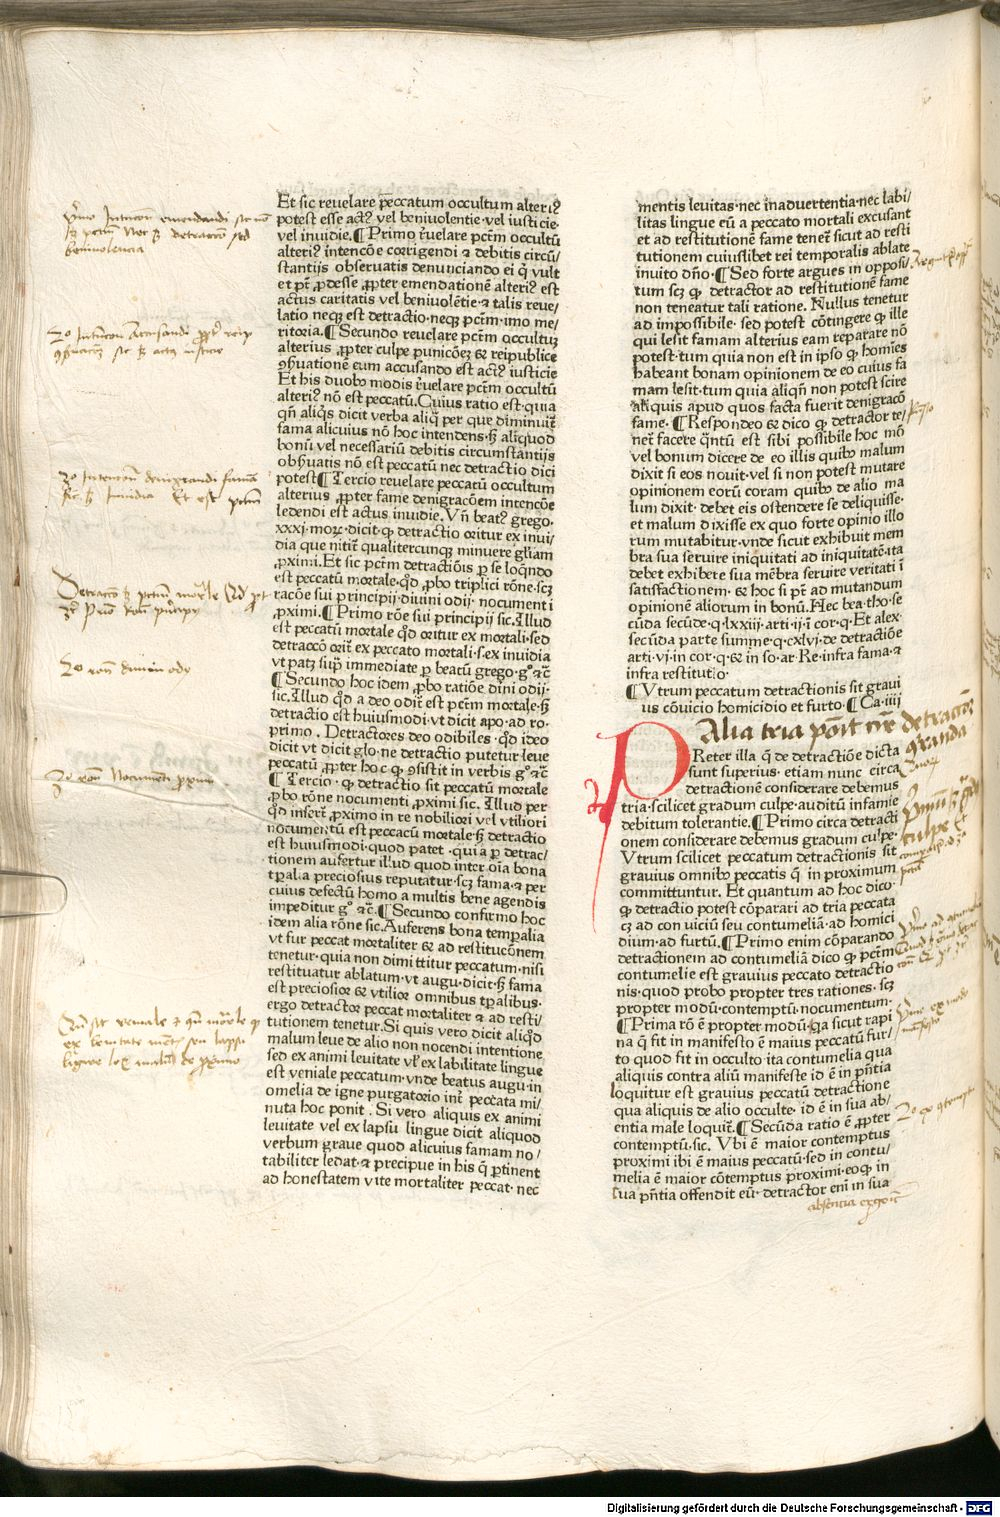 Et sic reuelare pc̄catum occultum alteriꝰ
potest esse actꝰ vel beniuolentie·vel iusticie·
vel inuidie.¶Primo r̄uelare pctm̄ occultū
alteriꝰ intencōe corrigendi ⁊ debitis circū/
stantijs obseruatis denunciando ei q̇ vult
et pt̄ ꝓdesse ꝓpter emendationē alteriꝰ est
actus caritatis vel beniuolētie·⁊ talis reue/
latio neqꝫ est detractio·neqꝫ pctm̄·imo me/
ritoria.¶Secundo reuelare pctm̄ occultuꝫ
alterius ꝓpter culpe punicōeꝫ & reipublice
ꝯẜuationē eum accusando est actꝰ iusticie
Et his duobꝰ modis r̄uelare pctm̄ occultū
alteriꝰ nō est peccatū.Cuius ratio est·quia
qn̄ aliq̇s dicit verba aliq̄ per que diminuit᷑
fama alicuius nō hoc intendens·ẜꝫ aliquod
bonū vel necessariū debitis circumstantijs
obẜuatis nō est peccatū nec detractio dici
potest¶Tercio reuelare peccatū occultum
alterius ꝓpter fame denigracōem intencōe
ledendi est actus inuidie.Vn̄ beatꝰ grego.
xxxi·moꝝ·dicit·ꝙ detractio oritur ex inui/
dia que nitit᷑ qualitercunqꝫ minuere gl̄iam
ꝓximi.Et sic pctm̄ detractiōis ꝑ se loq̄ndo
est peccatū mortale·qd̓ ꝓbo triplici rōne·scꝫ
racōe sui principij·diuini odij·nocument i
ꝓximi.¶Primo rōe sui principij sic.Illud
est peccatū mortale qd̓ oritur ex mortali·sed
detraccō orit᷑ ex peccato mortali·s·ex inuidia
vt patꝫ sup̄ immediate ꝑ beatū grego·gͦ ⁊c̄
¶Secundo hoc idem ꝓbo ratiōe diui odij·
sic.Illud qd̓ a deo odit᷑ est pctm̄ mortale·ẜꝫ
detractio est huiusmodi·vt dicit apo·ad ro·
primo. Detractores deo odibiles·qd̓ ideo
dicit vt dicit glo·ne detractio putetur leue
peccatū ꝓpter hoc ꝙ ꝯsistit in verbis gͦ ⁊c̄
¶Tercio·ꝙ detractio sit peccatū mortale
ꝓbo rōne nocumenti ꝓximi sic. Illud per
qd̓ infert᷑ ꝓximo in re nobiliori vel vtiliori
nocumentū est peccacū mortale·ẜꝫ detractio
est huiusmodi·quod patet·quia ꝑ detrac/
tionem aufertur illud quod inter oīa bona
tꝑalia preciosius reputatur·scꝫ fama·⁊ per
cuius defectū homo a multis bene agendis
impeditur gͦ ⁊c̄.¶Secundo confirmo hoc
idem alia rōne sic.Auferens bona temꝑalia
vt fur peccat mortaliter & ad restitucōnem
tenetur·quia non dimittitur peccatum·nisi
restituatur ablatum·vt augu·dicit·ẜꝫ fama
est preciosior & vtilior omnibus tꝑalibus·
ergo detractor peccat mortaliter ⁊ ad resti/
tutionem tenetur.Si quis vero dicit aliqd̓
malum leue de alio non nocendi intentione
sed ex animi leuitate vl̓ ex labilitate lingue
est veniale peccatum·vnde beatus augu·in
omelia de igne purgatorio int᷑ peccata mi/
nuta hoc ponit. Si vero aliquis ex animi
leuitate vel ex lapsu lingue dicit aliquod
verbum graue quod alicuius famam no/
tabiliter ledat·⁊ precipue in his q̄ ꝑtinent
ad honestatem vite mortaliter peccat·nec
mentis leuitas·nec inaduertentia·nec labi/
litas lingue eū a peccato mortali excusant
et ad restitutionē fame tenet᷑ sicut ad resti
tutionem cuiuslibet rei temporalis ablate
inuito dn̄o·¶Sed forte argues in opposi/
tum scꝫ ꝙ detractor ad restitutionē fame
non teneatur tali ratione. Nullus tenetur
ad impossibile·sed potest cōtingere ꝙ ille
qui lesit famam alterius eam reparare nō
potest·tum quia non est in ipso ꝙ homīes
habeant bonam opinionem de eo cuius fa
mam lesit·tum quia aliqn̄ non potest scire
aliquis apud quos facta fuerit denigracō
fame·¶Respondeo & dico ꝙ detractor te/
net᷑ facere q̄ntū est sibi possibile hoc mō
vel bonum dicere de eo illis quibꝰ malum
dixit si eos nouit·vel si non potest mutare
opinionem eorū coram quibꝰ de alio ma
lum dixit·debet eis ostendere se deliquisse·
et malum dixisse ex quo forte opinio illo
rum mutabitur·vnde sicut exhibuit mem
bra sua seruire iniquitati ad iniquitatē·ita
debet exhibere sua mēbra seruire veritati ī
satisfactionem·& hoc si pt̄ ad mutandum
opinionē aliorum in bonū.Hec bea·tho·se
cūda secūde·q·lxxiii·arti·ii·ī cor·q·Et alex·
secūda parte summe·q·cxlvi·de detractiōe
arti·vi·in cor·q·& in so·ar·Re·infra fama·⁊
infra restitutio·
¶Vtrum peccatum detractionis sit graui
us cōuicio homicidio et furto·¶Ca·iiii
PReter illa q̄ de detractiōe dicta
sunt superius·etiam nunc circa
detractionē considerare debemus
tria·scilicet gradum culpe·auditū infamie
debitum tolerantie.¶Primo circa detracti
onem considerare debemus gradum culpe·
Vtrum scilicet peccatum detractionis sit
grauius omnibꝰ peccatis q̄ in proximum
committuntur. Et quantum ad hoc dico·
ꝙ detractio potest cōparari ad tria peccata
cꝫ ad conuiciū seu contumeliā·ad homici
dium·ad furtū.¶Primo enim cōparando
detractionem ad contumeliā dico ꝙ pctm̄
contumelie est grauius peccato detractio
nis·quod probo propter tres rationes·scꝫ
propter modū·contemptū·nocumentum·
¶Prima rō ē propter modū·Qa sicut rapi
na q̄ fit in manifesto ē maius peccatū fur/
to quod fit in occulto·ita contumelia qua
aliquis contra aliū manifeste id ē in pn̄tia
loquitur est grauius peccatū detractione
qua aliquis de alio occulte·id ē in sua ab/
entia male loquit᷑.¶Secūda ratio ē ꝓpter
contemptū·sic. Vbi ē maior contemptus
proximi ibi ē maius peccatū·sed in contu/
melia ē maior cōtemptus proximi·eo ꝙ in
sua pn̄tia offendit eū·detractor enī in sua
absencia ergo ⁊c̄
Digitalisierung gefördert durch die Deutsche Forschungsgemeinschaft - DFG